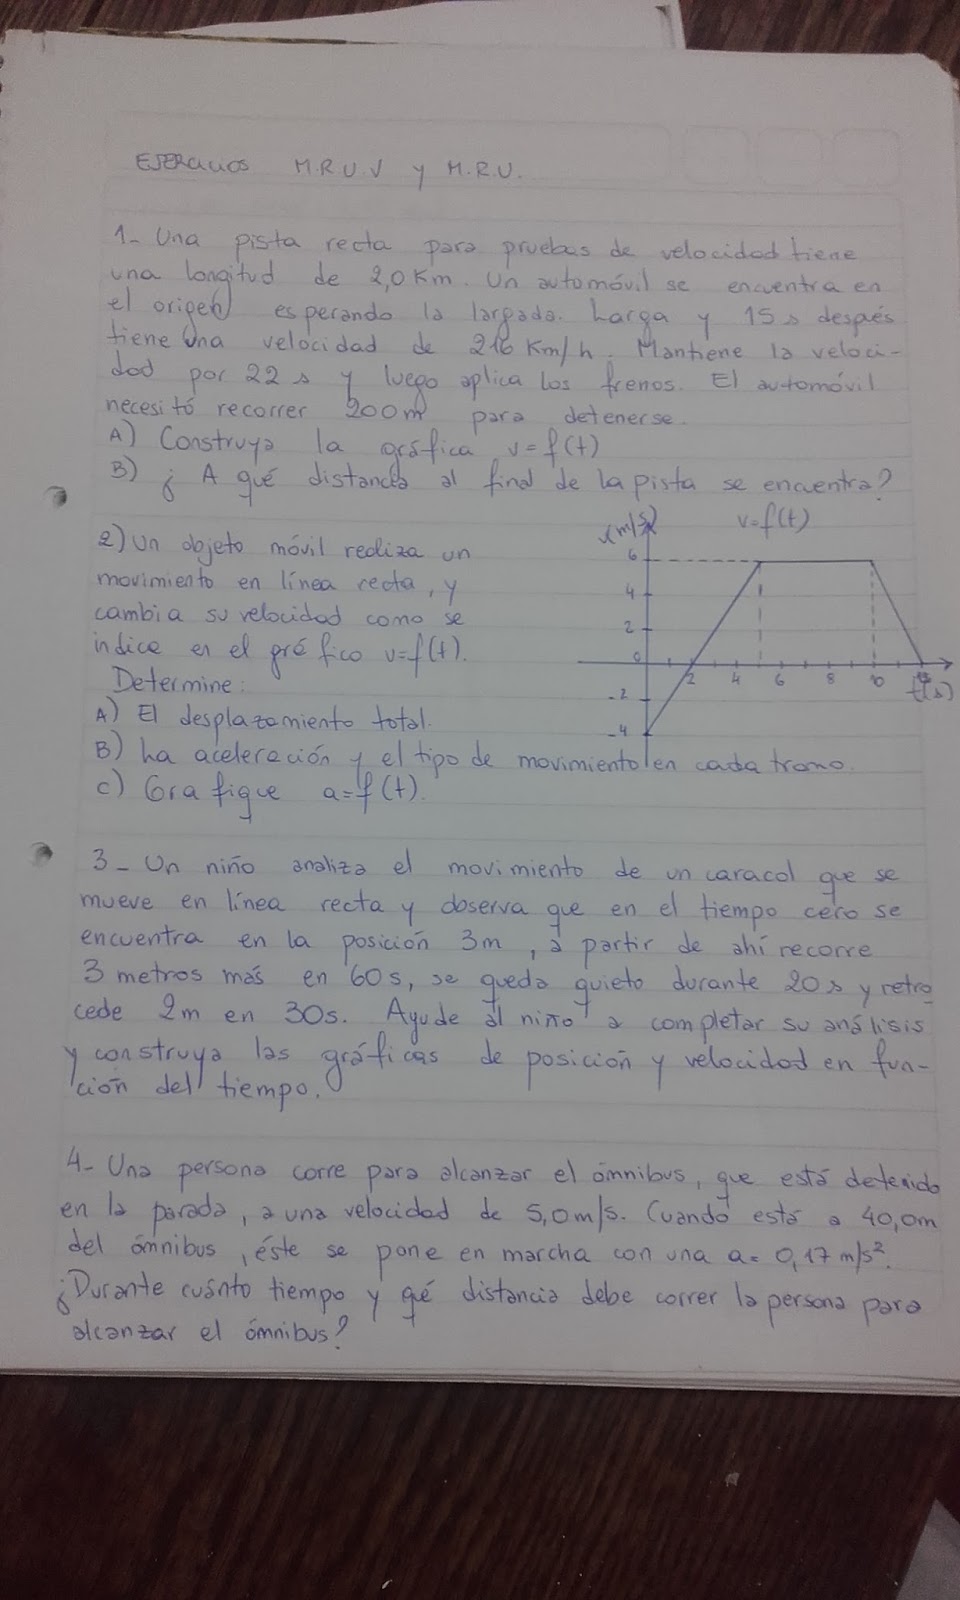 EJERCICIOS M.R.U.V y M.R.U.
1- Una pista recta para pruebas de velocidad tiene
una longitud de 2,0 Km. Un automóvil se encuentra en
el origen esperando la largada. Larga y 15 s después
tiene una velocidad de 216 Km/h. Mantiene la veloci-
dad por 22 s y luego aplica los frenos. El automóvil
necesitó recorrer 200m para detenerse.
A) Construya la gráfica v=f(t)
B) ¿A qué distancia al final de la pista se encuentra?
2) Un objeto móvil realiza un
movimiento en línea recta, y
cambia su velocidad como se
indica en el gráfico v=f(t).
Determine:
A) El desplazamiento total.
B) La aceleración y el tipo de movimiento en cada tramo.
C) Grafique a=f(t).
(m/s)
v=f(t)
6
4
2
0
-2
-4
2 4 6 8 10
t(s)
3- Un niño analiza el movimiento de un caracol que se
mueve en línea recta y observa que en el tiempo cero se
encuentra en la posición 3m, a partir de ahí recorre
3 metros más en 60s, se queda quieto durante 20s y retro
cede 2m en 30s. Ayude al niño a completar su análisis
y construya las gráficas de posición y velocidad en fun-
ción del tiempo.
4- Una persona corre para alcanzar el ómnibus, que está detenido
en la parada, a una velocidad de 5,0m/s. Cuando está a 40,0m
del ómnibus, éste se pone en marcha con una a= 0,17 m/s².
¿Durante cuánto tiempo y qué distancia debe correr la persona para
alcanzar el ómnibus?